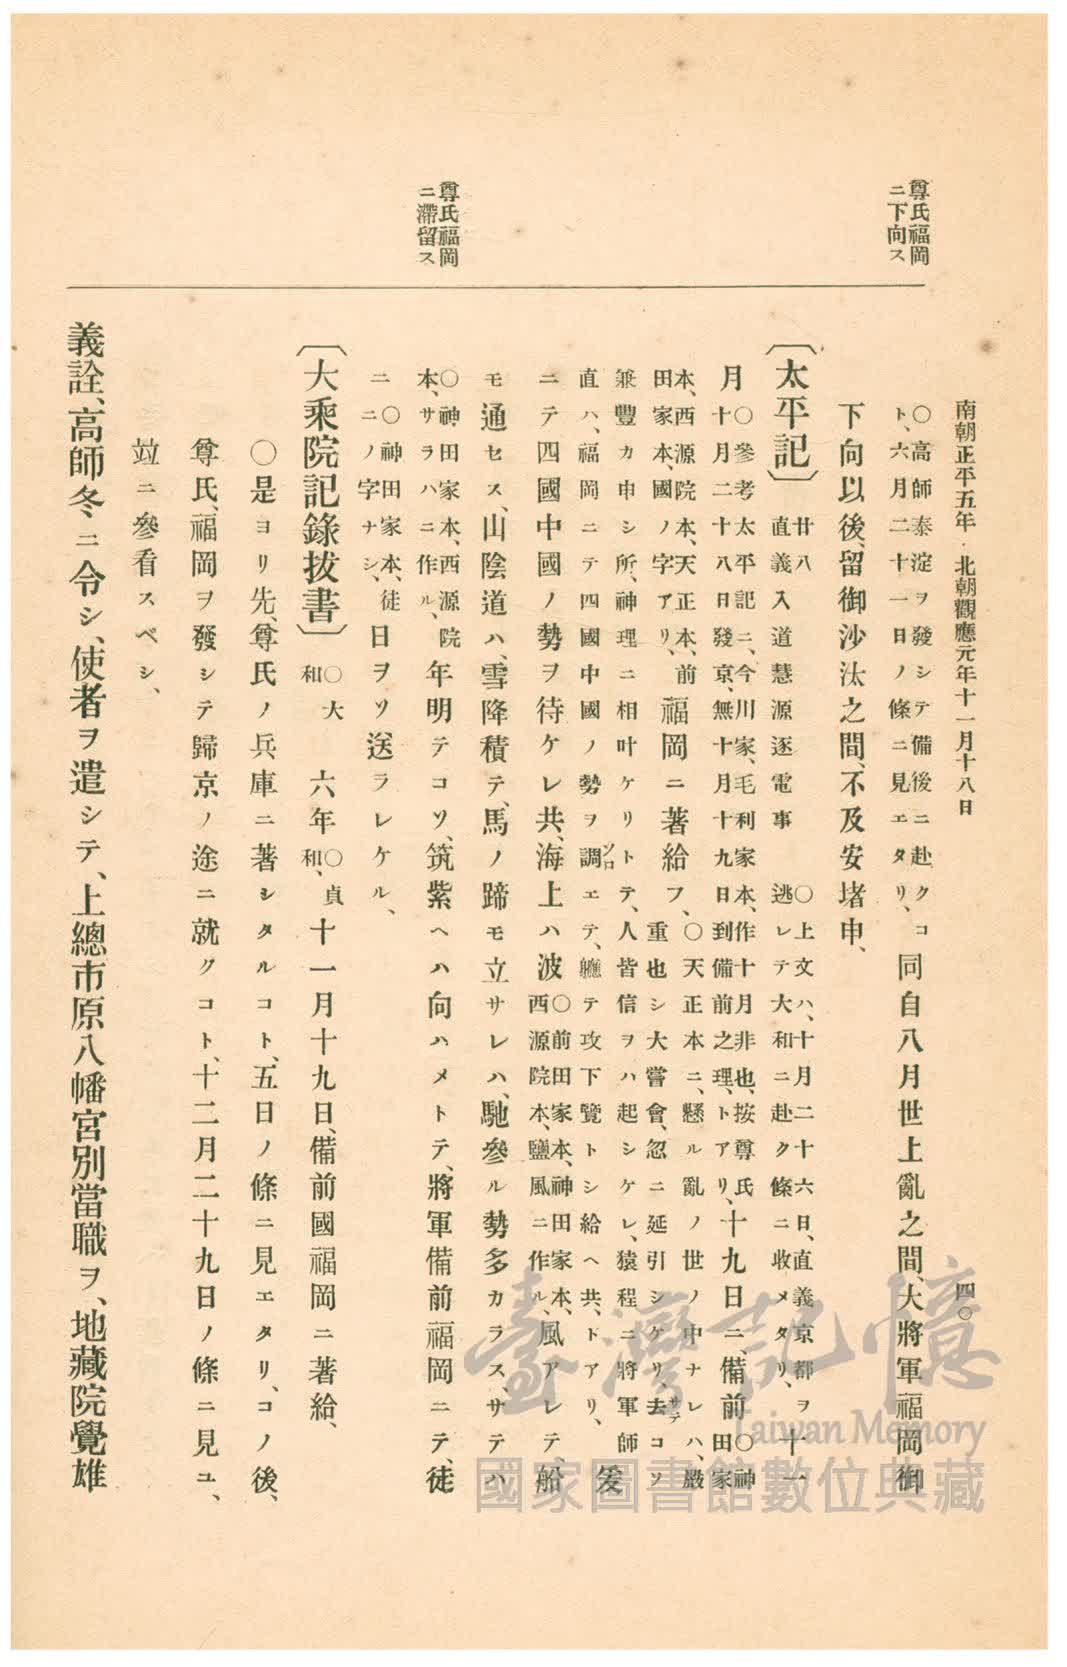 南朝正平五年・北朝觀應元年十一月十八日　四〇
尊氏福岡
ニ下向ス
○高師泰淀ヲ發シテ備後ニ赴クコト、六月二十一日ノ條ニ見エタリ、同自八月世上亂之間、大將軍福岡御
下向以後、留御沙汰之間、不及安堵申、
〔太平記〕廿八 直義入道慧源逐電事 ○上文ハ、十月二十六日、直義京都ヲ逃レテ大和ニ赴ク條ニ收メタリ、十一
月○參考太平記ニ、今川家、毛利家本、作十月非也、按尊氏十月二十八日發京、無十月十九日到備前之理、トアリ、十九日ニ、備前○神田家
本、西源院本、天正本、前田家本、國ノ字アリ、福岡ニ著給フ、○天正本ニ、懸ル亂ノ世ノ中ナレハ、嚴重也シ大嘗會、忽ニ延引シケリ、去サテコソ
兼豐カ申シ所、神理ニ相叶ケリトテ、人皆信ヲハ起シケレ、猿程ニ將軍師直ハ、福岡ニテ四國中國ノ勢ヲ調ソロエテ、軈テ攻下覽トシ給ヘ共、トアリ、爰
ニテ四國中國ノ勢ヲ待ケレ共、海上ハ波○前田家本、神田家本、西源院本、鹽風ニ作ル、風アレテ、船
モ通セス、山陰道ハ、雪降積テ、馬ノ蹄モ立サレハ、馳參ル勢多カラス、サテハ
尊氏福岡
ニ滯留ス
○神田家本、西源院本、サラハニ作ル、年明テコソ、筑紫ヘハ向ハメトテ、將軍備前福岡ニテ、徒
ニ○神田家本、徒ニノ字ナシ、日ヲソ送ラレケル、
〔大乘院記錄拔書〕○大和 六年○貞和、十一月十九日、備前國福岡ニ著給、
○是ヨリ先、尊氏ノ兵庫ニ著シタルコト、五日ノ條ニ見エタリ、コノ後、
尊氏、福岡ヲ發シテ歸京ノ途ニ就クコト、十二月二十九日ノ條ニ見ユ、
竝ニ參看スベシ、
義詮、高師冬ニ令シ、使者ヲ遣シテ、上總市原八幡宮別當職ヲ、地藏院覺雄
臺灣記憶
Taiwan Memory
國家圖書館數位典藏